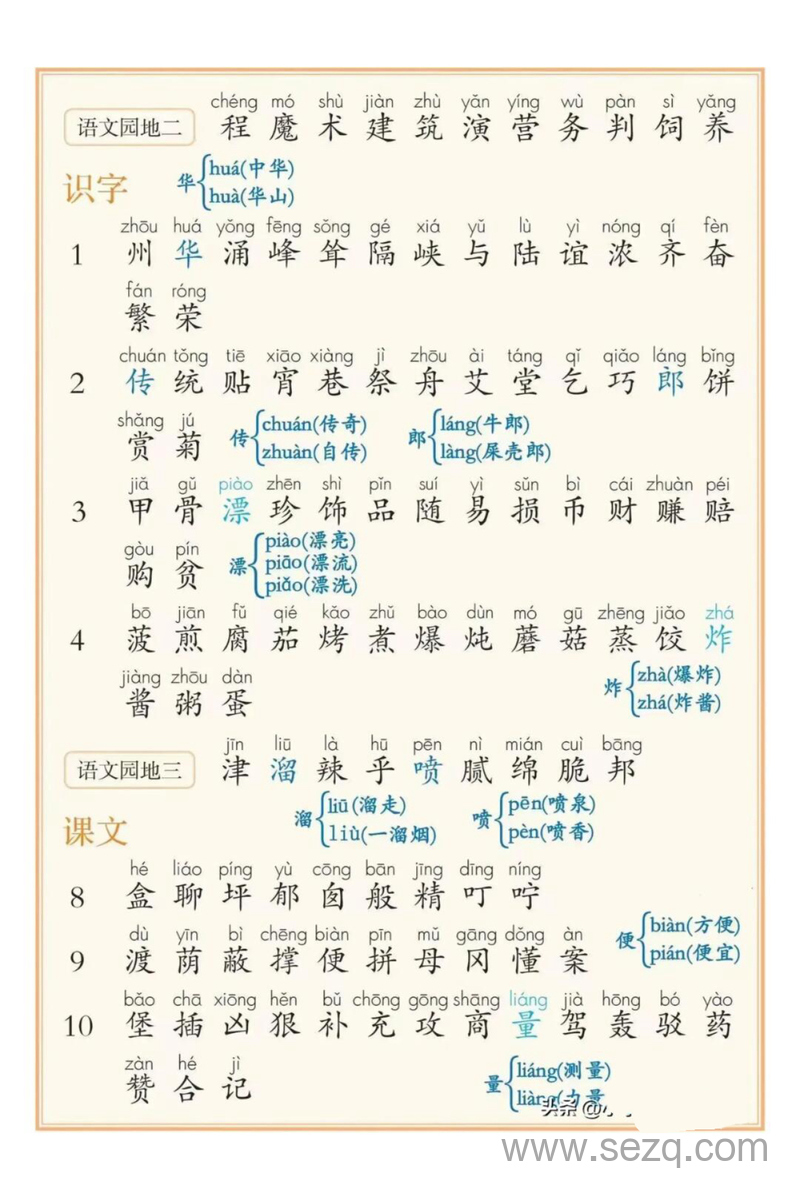 chéng mó shù jiàn zhù yǎn yíng wù pàn sì yǎng
语文园地二 程 魔 术 建 筑 演 营 务 判 饲 养
识字 华 huá(中华) huà(华山)
zhōu huá yǒng fēng sǒng gé xiá yǔ lù yì nóng qí fèn
1 州 华 涌 峰 耸 隔 峡 与 陆 谊 浓 齐 奋
fán róng
繁 荣
chuán tǒng tiē xiāo xiàng jì zhōu ài táng qǐ qiǎo láng bǐng
2 传 统 贴 宵 巷 祭 舟 艾 堂 乞 巧 郎 饼
shǎng jú
赏 菊 传 chuán(传奇) zhuàn(自传) 郎 láng(牛郎) làng(屎壳郎)
jiǎ gǔ piào zhēn shì pǐn suí yì sǔn bì cái zhuàn péi
3 甲 骨 漂 珍 饰 品 随 易 损 币 财 赚 赔
gòu pín
购 贫 漂 piào(漂亮) piāo(漂流) piǎo(漂洗)
bō jiān fǔ qié kǎo zhǔ bào dùn mó gū zhēng jiǎo zhá
4 菠 煎 腐 茄 烤 煮 爆 炖 蘑 菇 蒸 饺 炸
jiàng zhōu dàn
酱 粥 蛋 炸 zhà(爆炸) zhá(炸酱)
jīn liū là hū pēn nì mián cuì bāng
语文园地三 津 溜 辣 乎 喷 腻 绵 脆 邦
课文 溜 liū(溜走) liù(一溜烟) 喷 pēn(喷泉) pèn(喷香)
hé liáo píng yù cōng bān jīng dīng níng
8 盒 聊 坪 郁 囱 般 精 叮 咛
dù yīn bì chēng biàn pīn mǔ gāng dǒng àn
9 渡 荫 蔽 撑 便 拼 母 冈 懂 案 便 biàn(方便) pián(便宜)
bǎo chā xiōng hěn bǔ chōng gōng shāng liáng jià hōng bó yào
10 堡 插 凶 狠 补 充 攻 商 量 驾 轰 驳 药
zàn hé jì
赞 合 记 量 liáng(测量) liàng(力量
头条 @小
www.sezq.com